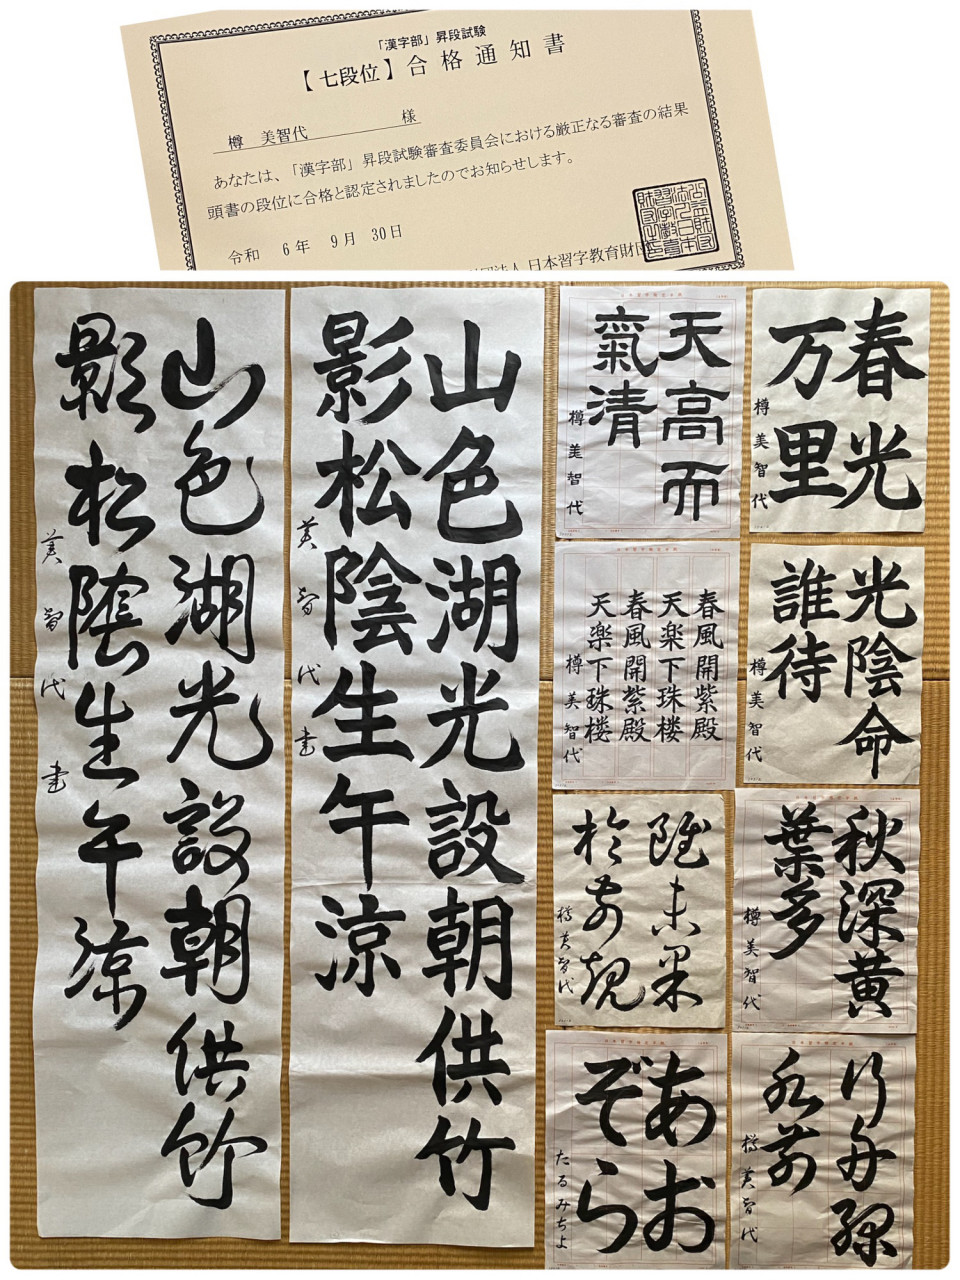 「漢字部」昇段試験
【七段位】合格通知書
樽 美智代 様
あなたは、「漢字部」昇段試験審査委員会における厳正なる審査の結果
頭書の段位に合格と認定されましたのでお知らせします。
令和 6年 9月 30日
財団法人 日本習字教育財団
春光
万里
樽美智代
天高而
氣清
樽美智代
光陰命
誰待
樽美智代
春風開紫殿
天楽下珠楼
春風開紫殿
天楽下珠楼
樽美智代
秋深黄
葉多
樽美智代
雖未果
於
樽美智代
行舟緑
水前
樽美智代
あお
ぞら
たるみちよ
山色湖光設朝供竹
影松陰生午涼
美智代書
山色湖光設朝供竹
影松陰生午涼
美智代書